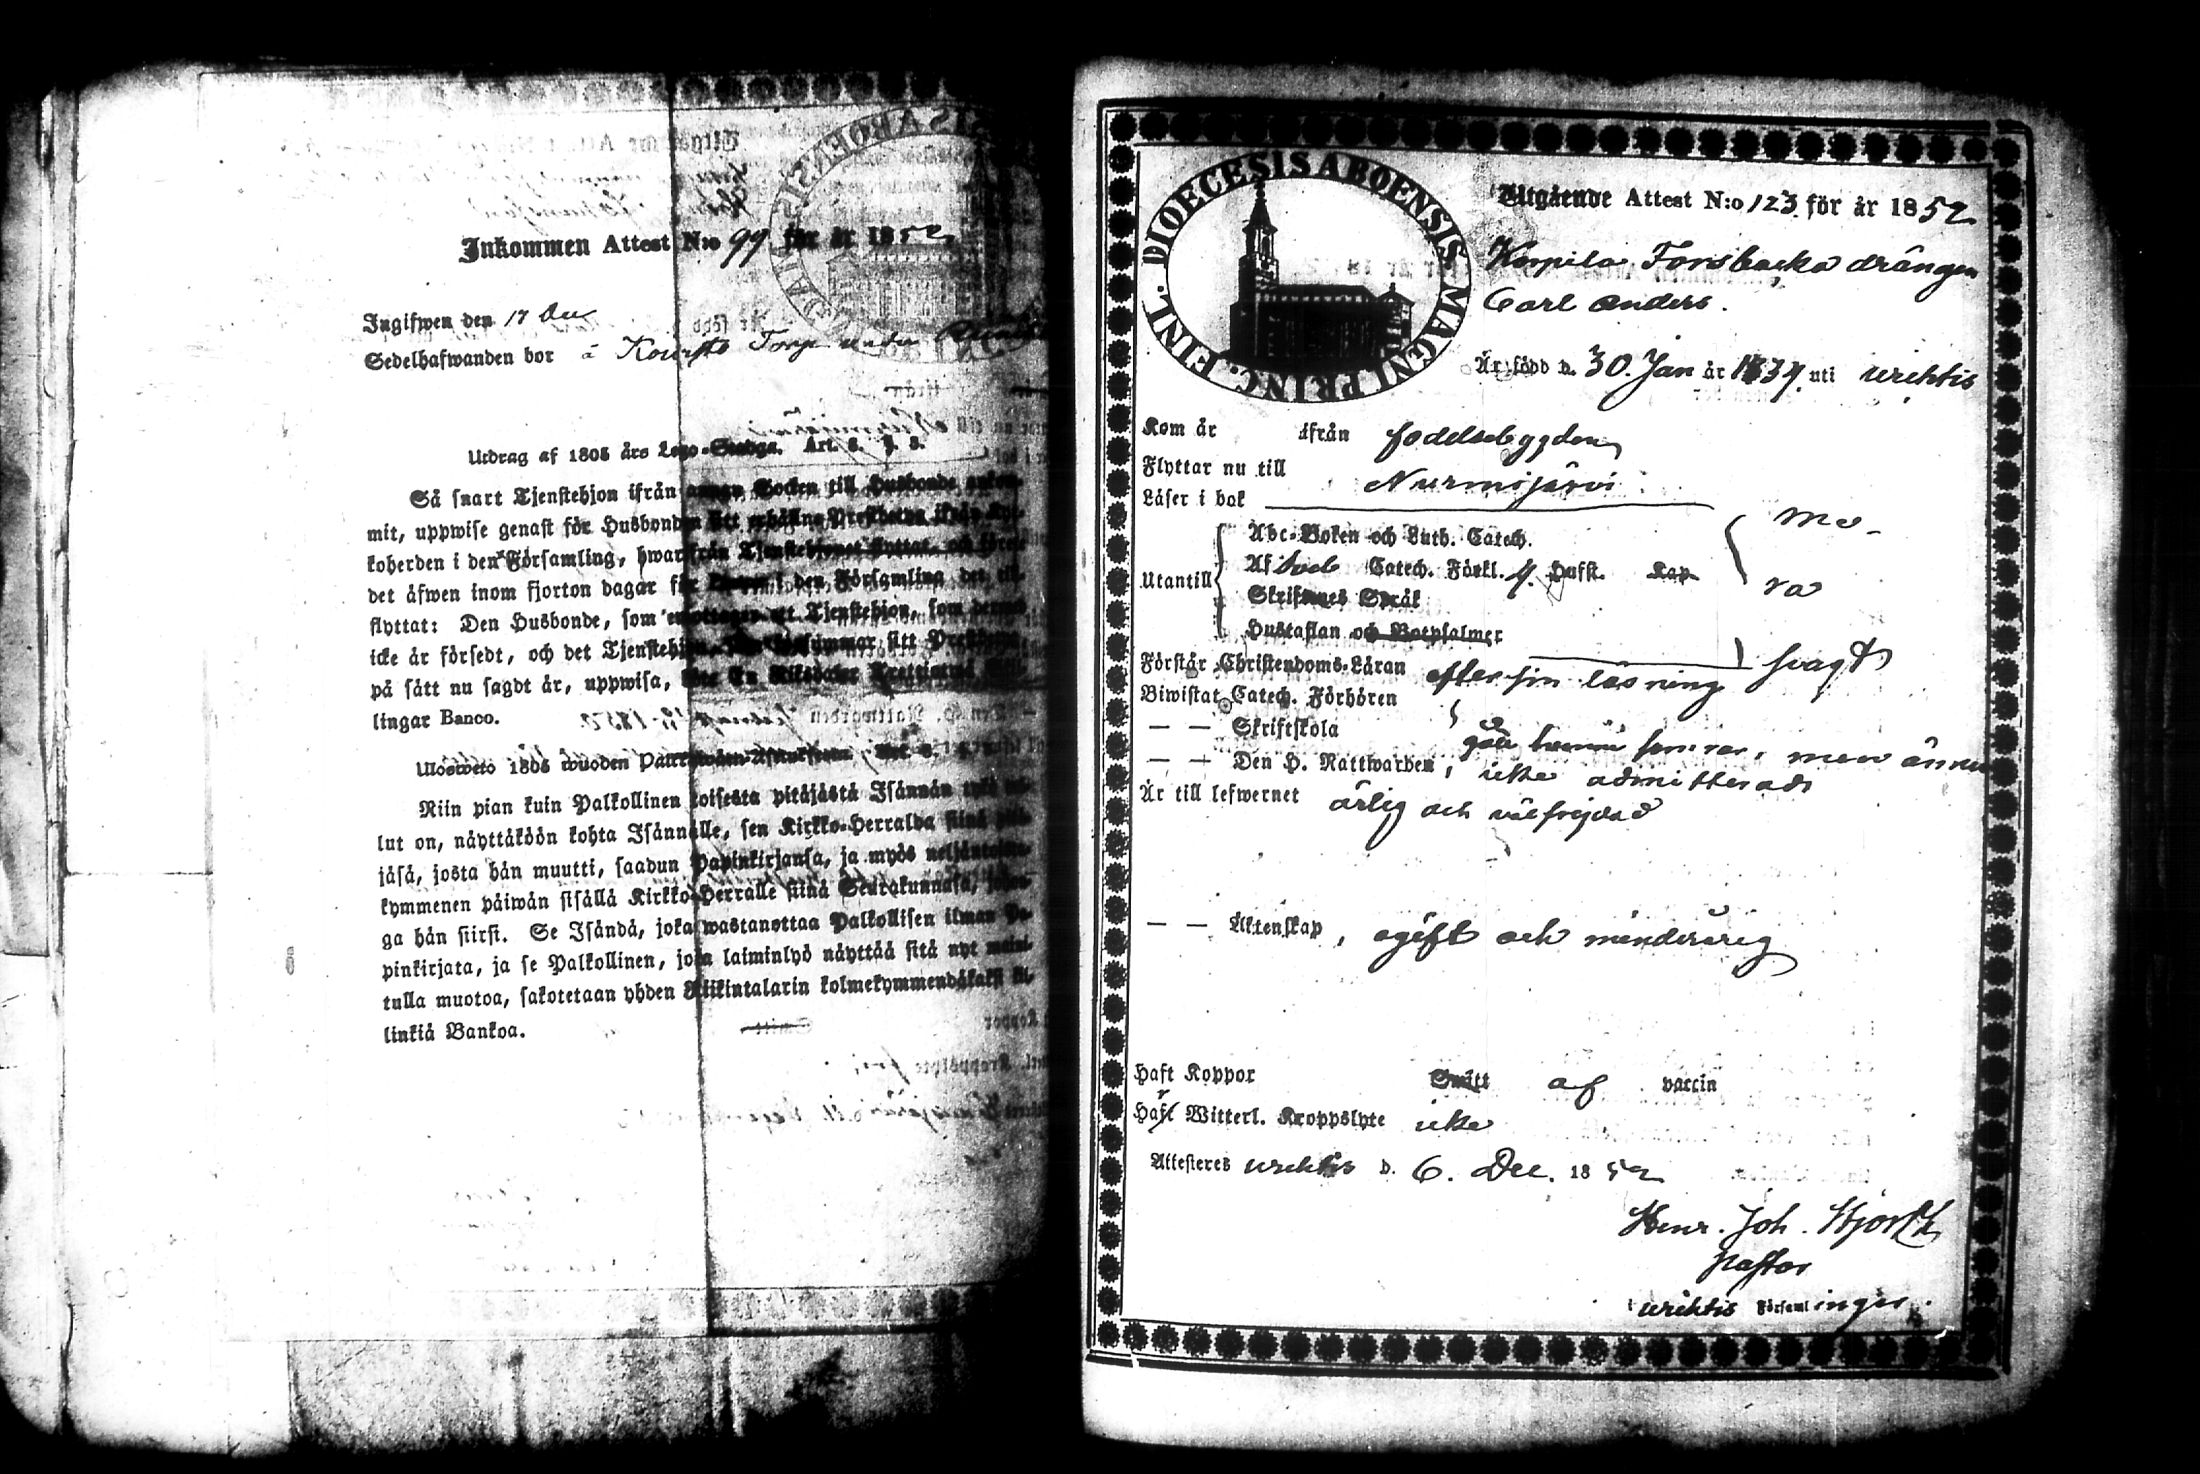 Inkommen Attest N:o 99 för år 1852
Ingifwen den 17 Dec
Sedelhafwanden bor å Torp under
Utdrag af 1805 års Lego-Stadga. Art. 8. § 3.
Så snart Tjenstehjon ifrån annan Socken till Husbonde ankom-
mit, uppwise genast för Husbonden sitt erhållna Prestbetyg ifrån Kyr-
koherden i den Församling, hwarifrån Tjenstehjonet flyttat, och förete
det äfwen inom fjorton dagar för i den Församling det till-
flyttat: Den Husbonde, som emottager ett Tjenstehjon, som dermed
icke är försedt, och det Tjenstehjon, som försummar sitt Prestbetyg
på sätt nu sagdt är, uppwisa, böte En Riksdaler Trettiotwå Skil-
lingar Banco.
Ulosweto 1805 wuoden Palkkawäen-Asetuksesta.
Niin pian kuin Palkollinen toisesta pitäjästä Isännän tykö tul-
lut on, näyttäköön kohta Isännälle, sen Kirkko-Herralda siinä pitä-
jäsä, josta hän muutti, saadun Papinkirjansa, ja myös neljäntoista-
kymmenen päiwän sisällä Kirkko-Herralle siinä Seurakunnasa, johon-
ga hän siirsi. Se Isändä, joka wastanottaa Palkollisen ilman Pa-
pinkirjata, ja se Palkollinen, joka laiminlyö näyttää sitä nyt maini-
tulla muotoa, sakotetaan yhden Riikintalarin kolmekymmendäkaksi Kil-
linkiä Bankoa.
DIOECESIS ABOENSIS MAGNI PRINC. FINL.
Utgående Attest N:o 123 för år 1852
Korpila Forsbacka drängen
Carl Anders.
Är född d. 30. Jan år 1837. uti Wichtis
Kom år ifrån födelsebygden
Flyttar nu till Nurmijärvi
Läser i bok
Abc-Boken och Luth. Catech.
Utantill Af Catech. Förkl. 4. Hufst. Kap
Skriftenes Språk
Hustaflan och Botpsalmer
Förstår Christendoms-Läran efter sin läsning svagt
Biwistat Catech. Förhören
— — Skriftskola
— — Den H. Nattwarden, icke admitterad
Är till lefwernet ärlig och välfrejdad
— — Äktenskap, ogift och minderårig
Haft Koppor Smitt af vaccin
Har Witterl. Kroppslyte icke
Attesteres Wichtis d. 6. Dec. 1852
Henr. Joh. Hjorth
Pastor
i Wichtis Församlingen.